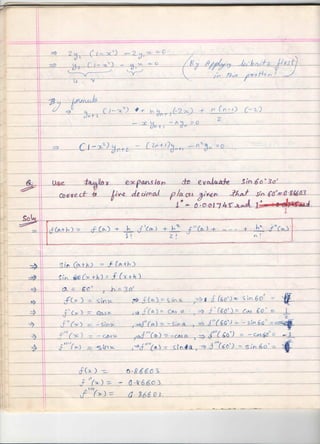 ⇒ 2y₁ (1-x²) - 2y₁x = 0
⇒ y₂ (1-x²) - y₁x = 0 (By Applying Leibnitz first in the portion)
u v
By formula
⇒ yₙ₊₂ (1-x²) + n yₙ₊₁ (-2x) + n(n-1) (-2)
2
- x yₙ₊₁ - n yₙ = 0
⇒ (1-x²) yₙ₊₂ - (2n+1) yₙ₊₁ - n² yₙ = 0
Q. Use taylor expansion to evaluate Sin 60°30'
correct to five decimal places given that Sin 60° = 0.86603
1° = 0.001745 rad
Solⁿ
f(a+h) = f(a) + h/1! f'(a) + h²/2! f''(a) + --- + hⁿ/n! fⁿ(a)
⇒ Sin (a+h) = f(a+h)
⇒ Sin (x+h) = f(x+h)
⇒ a = 60°, h = 30'
⇒ f(x) = sinx ⇒ f(a) = sin a, ⇒ f(60°) = sin 60° =
⇒ f'(x) = cosx ⇒ f'(a) = cos a ⇒ f'(60°) = cos 60° =
⇒ f''(x) = -sinx ⇒ f''(a) = -sin a, ⇒ f''(60°) = -sin 60° =
⇒ f'''(x) = -cosx ⇒ f'''(a) = -cos a ⇒ f'''(60°) = -cos 60° =
⇒ f''''(x) = sinx ⇒ f''''(a) = sin a, ⇒ f''''(60°) = sin 60° =
f(x) = 0.86603
f''(x) = -0.86603
f''''(x) = 0.86603